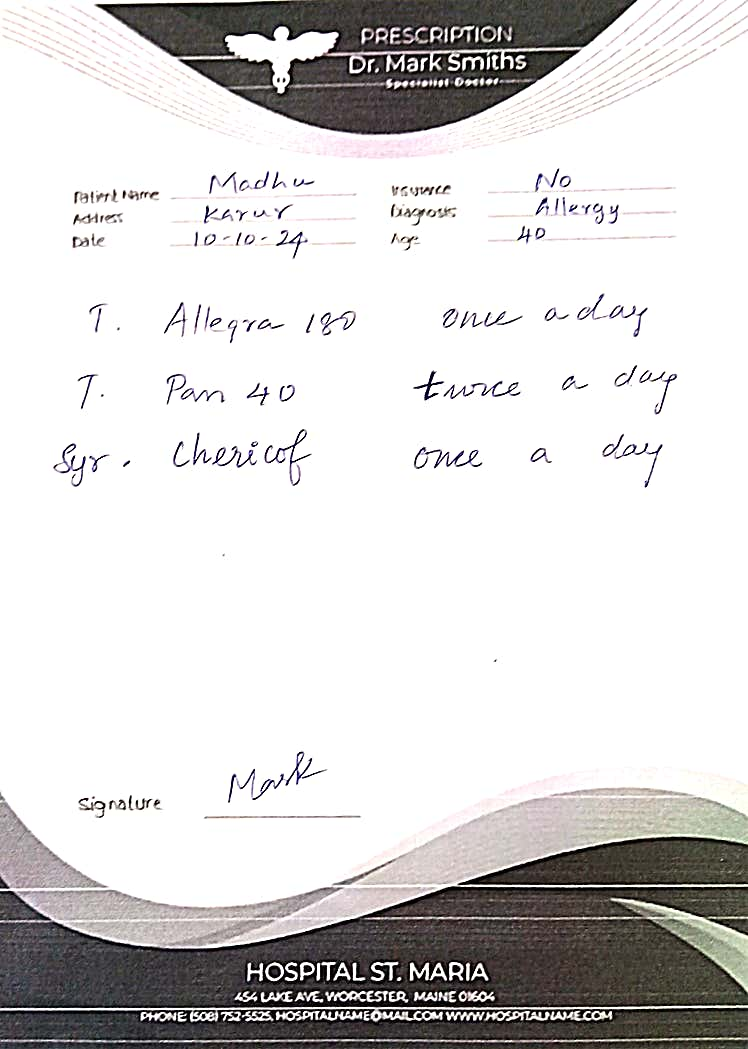 PRESCRIPTION
Dr. Mark Smiths
Specialist Doctor
Patient Name Madhu Insurance No
Address Karur Diagnosis Allergy
Date 10-10-24 Age 40
T. Allegra 180 once a day
T. Pan 40 twice a day
Syr. Chericof once a day
Signature Mark
HOSPITAL ST. MARIA
454 LAKE AVE, WORCESTER, MAINE 01604
PHONE: (508) 752-5525, HOSPITALNAME@MAIL.COM WWW.HOSPITALNAME.COM